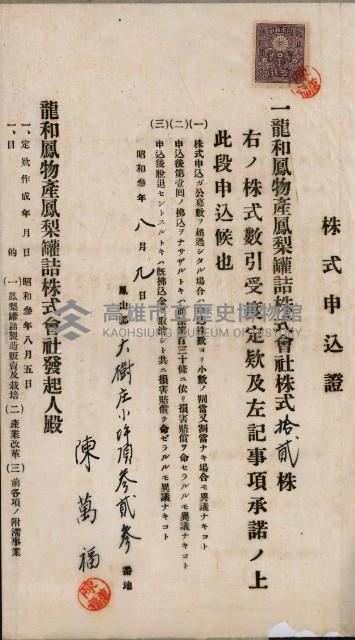 株式申込證
一龍和鳳物產鳳梨罐詰株式會社株式拾貳株
右ノ株式數引受度定欵及左記事項承諾ノ上
此段申込候也
(一)株式申込ガ公募數ヲ超過シタル場合ハ申込株數ヨリ小數ノ割當又割當ナキ場合モ異議ナキコト
(二)申込後第壹回ノ拂込ヲナサザルトキハ商法第百三十條ニ依リ損害賠償ヲ命セラルルモ異議ナキコト
(三)申込後脫退セントスルトキハ既拂込金ヲ取消シト共ニ損害賠償ヲ命セラルルモ異議ナキコト
昭和參年八月九日
鳳山郡大樹庄小坪頂參貳參番地
陳萬福
龍和鳳物產鳳梨罐詰株式會社發起人殿
一、定欵作成年月日 昭和參年八月五日
一、目的 (一)鳳梨罐詰製造販賣及栽培 (二)產業改革 (三)前各項ノ附濡事業
高雄市立歷史博物館
KAOHSIUNG MUSEUM OF HISTORY